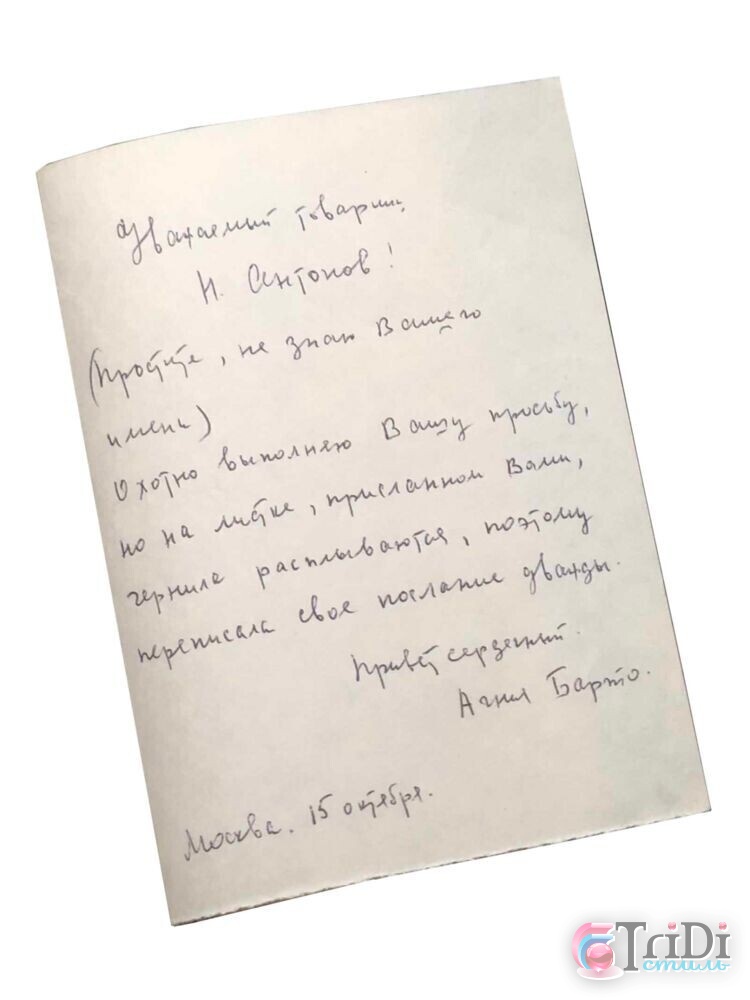 Уважаемый товарищ
Н. Антонов!
(Простите, не знаю Вашего
имени)
Охотно выполняю Вашу просьбу,
но на листке, присланном Вами,
чернила расплываются, поэтому
переписала свое послание дважды.
Привет сердечный.
Агния Барто.
Москва. 15 октября.
TriDi
стиль